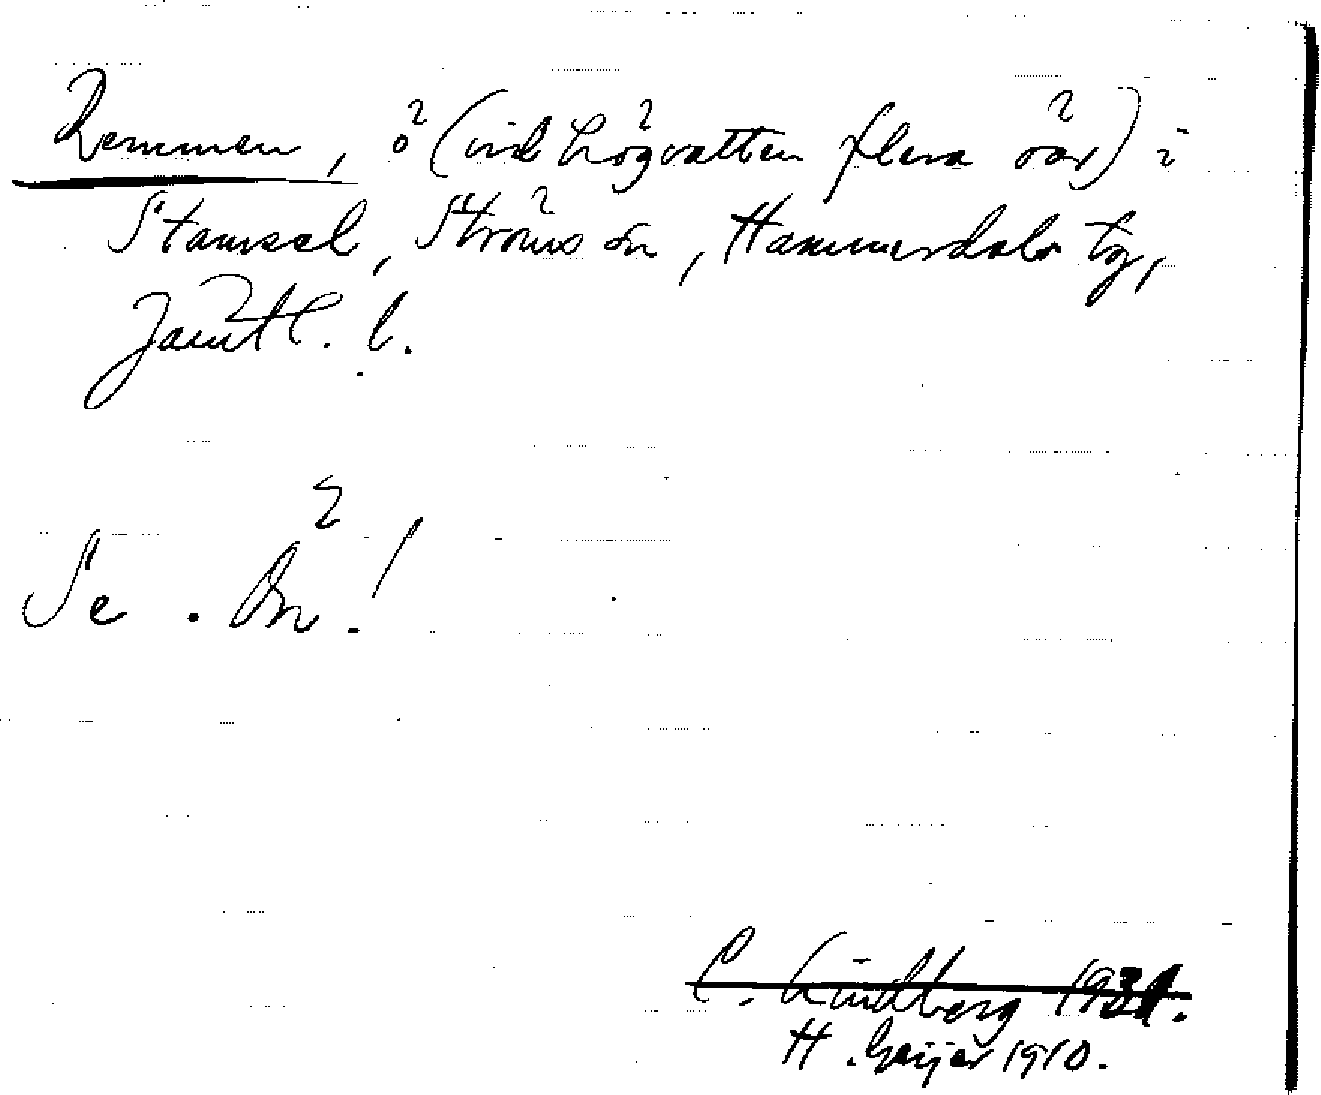 Remmen, ö (vid högvatten flera öar) i
Stamsel, Ströms sn, Hammerdals tg,
Jämtl. l.
Se . Ön!
C. Lindberg 1931.
H. Geijer 1910.